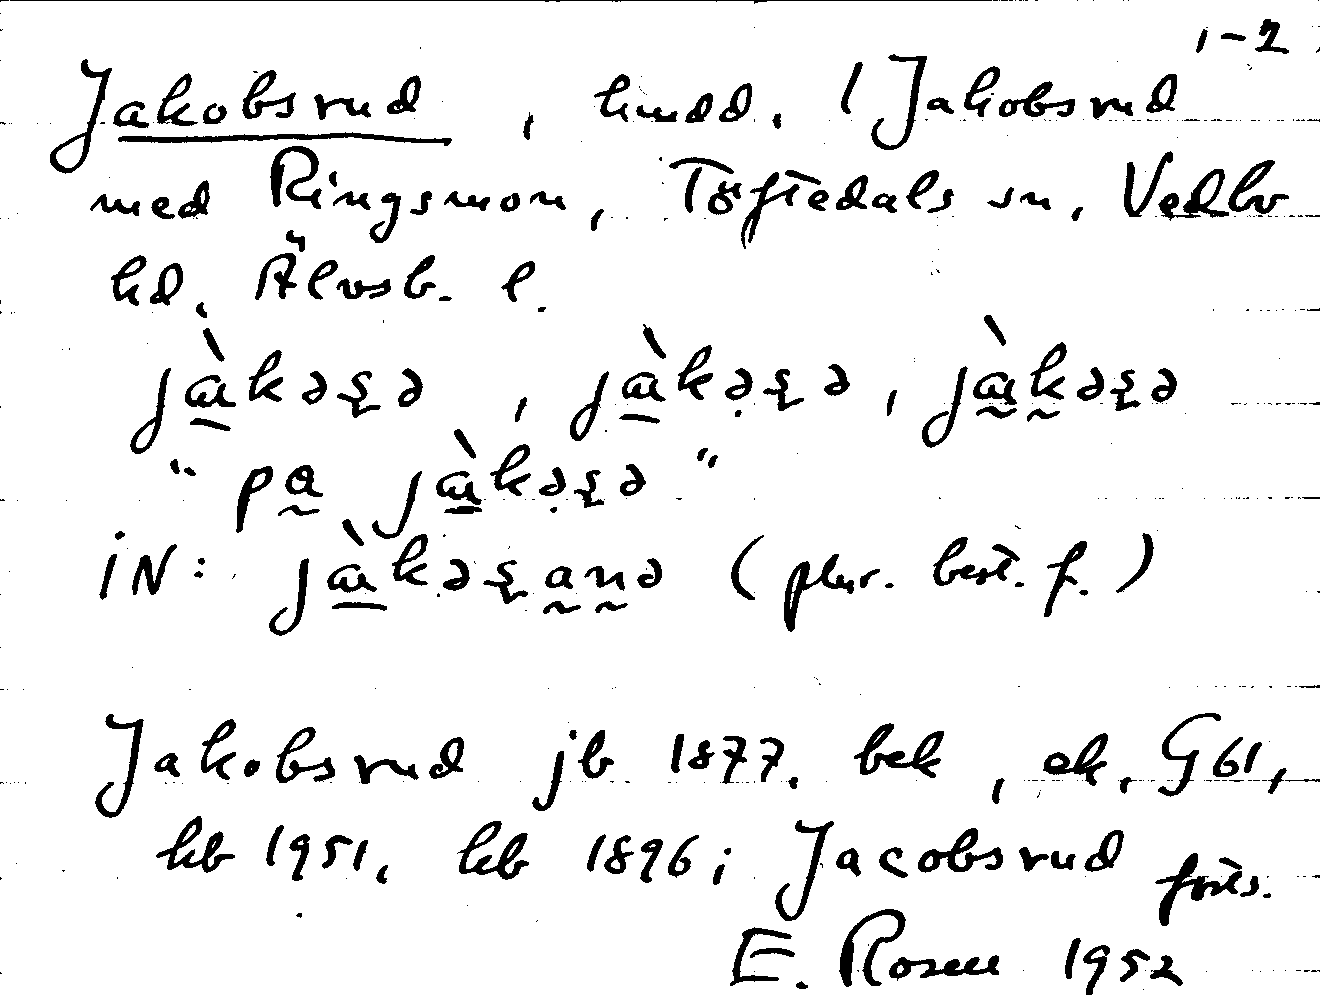 1-2
Jakobsrud, hmdd. 1 Jakobsrud
med Ringsmon, Töftedals sn, Vedbo
hd, Älvsb. l.
jàkəʂə, jàkəʂə, jàkəʂə
"pa jàkəʂə"
iN: jàkəʂanə (plur. best. f.)
Jakobsrud jb 1877, bek, ek, G61,
kb 1951, kb 1896; Jacobsrud forts.
E. Rosell 1952